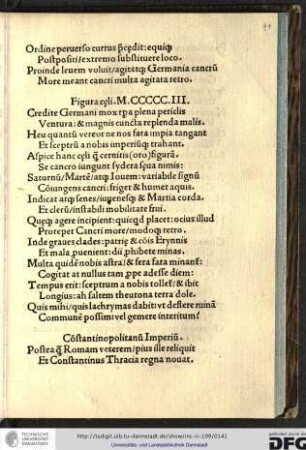 71
Ordine peruerso currus p̄cedit: equiq₃
Postpositi extremo substituere loco.
Proinde leuem voluit/agitatq₃ Germania cancrū
More meant cancri multa agitata retro.
Figura cęli. M.CCCCC.III.
Credite Germani mox tp̄a plena periclis
Ventura: & magnis cuncta replenda malis.
Heu quantū vereor ne nos fata impia tangant
Et sceptrū a nobis imperiūq₃ trahant.
Aspice hanc cęli q̄ cernitis (oro) figurā.
Se cancro iungunt sydera sęua nimis:
Saturnū/Martē/atq₃ Iouem: variabile signū
Cōiungens cancri: friget & humet aquis.
Indicat atq₃ senes/iuuenesq₃ & Martia corda.
Et clerū/instabili mobilitate frui.
Quęq₃ agere incipient: quicqd placet: ocius illud
Prorepet Cancri more/modoq₃ retro.
Inde graues clades: patrię & cōis Erynnis
Et mala puenient: dii phibete minas.
Multa quidē nobis astra: & fera fata minant᷑:
Cogitat at nullus tam ppe adesse diem:
Tempus erit: sceptrum a nobis tollet᷑: & ibit
Longius: ah saltem theutona terra dole.
Quis mihi/quis lachrymas dabit vt deflere ruinā
Communē possim: vel gemere interitum?
Cōstantinopolitanū Imperiū.
Postea q̄ Romam veterem/pius ille reliquit
Et Constantinus Thracia regna nouat.
TECHNISCHE
UNIVERSITÄT
DARMSTADT
http://tudigit.ulb.tu-darmstadt.de/show/inc-iv-199/0141
Universitäts- und Landesbibliothek Darmstadt
gefördert durch
DFG